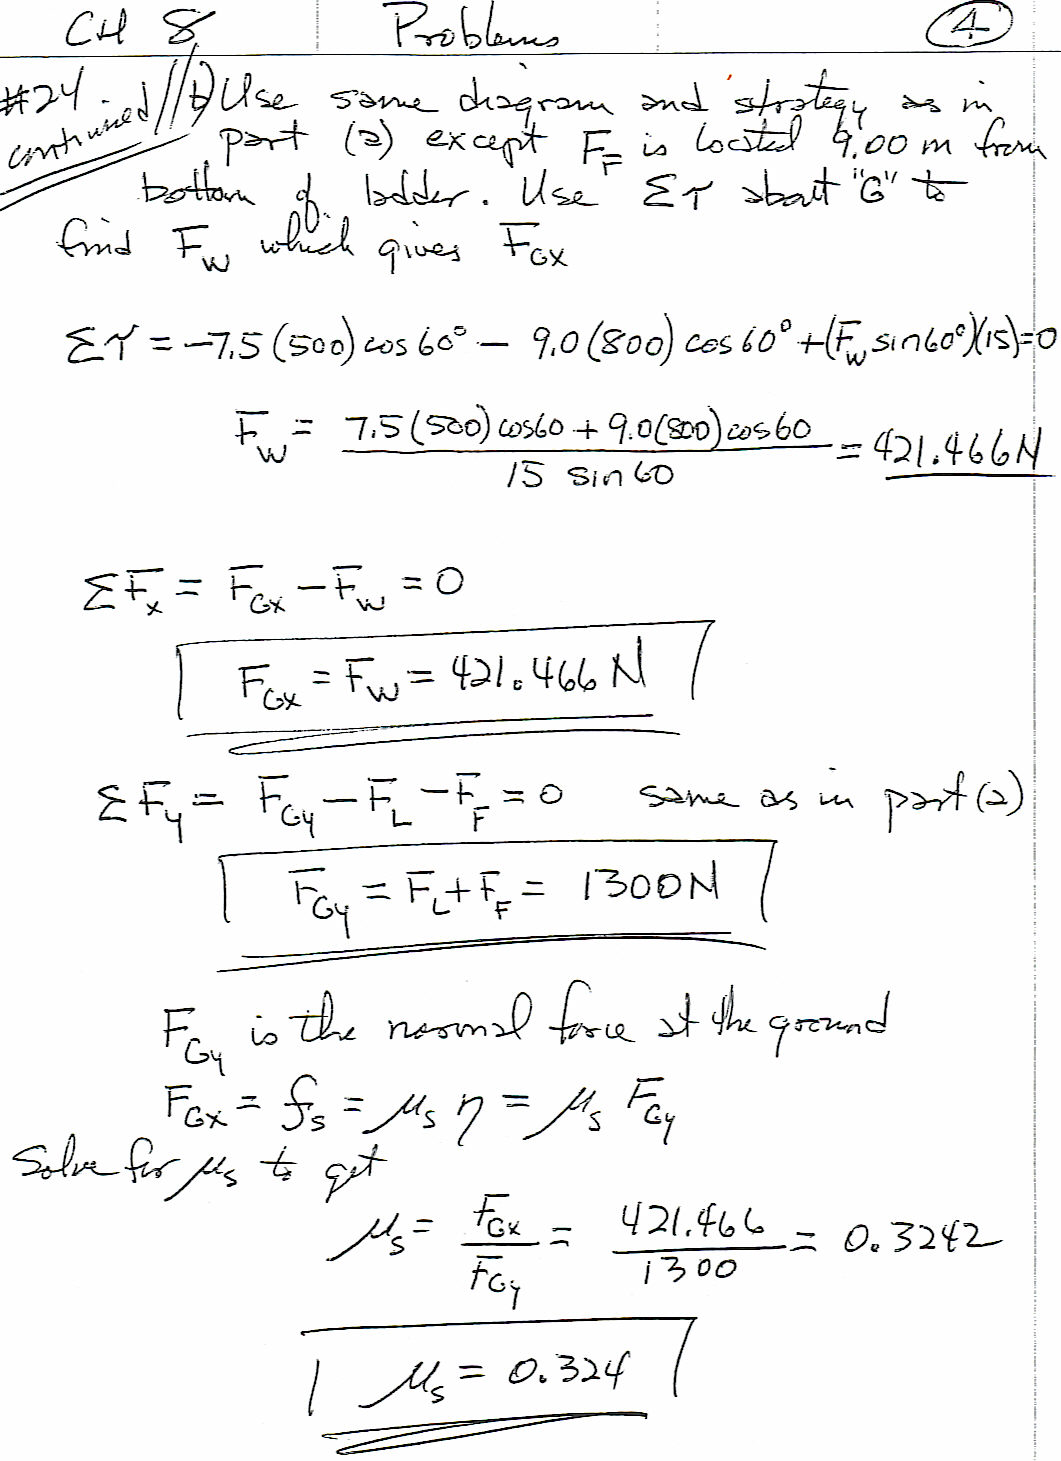 CH 8 Problems 4
#24 continued // b) Use same diagram and strategy as in
part (a) except F_F is located 9.00 m from
bottom of ladder. Use Στ about "G" to
find F_W which gives F_GX
Στ = -7.5 (500) cos 60° - 9.0 (800) cos 60° + (F_W sin 60°)(15) = 0
F_W = 7.5 (500) cos60 + 9.0(800) cos 60 / 15 sin 60 = 421.466 N
ΣF_x = F_Gx - F_W = 0
F_Gx = F_W = 421.466 N
ΣF_y = F_Gy - F_L - F_F = 0 same as in part (a)
F_Gy = F_L + F_F = 1300 N
F_Gy is the normal force at the ground
F_Gx = f_s = μ_s η = μ_s F_Gy
Solve for μ_s to get
μ_s = F_Gx / F_Gy = 421.466 / 1300 = 0.3242
μ_s = 0.324